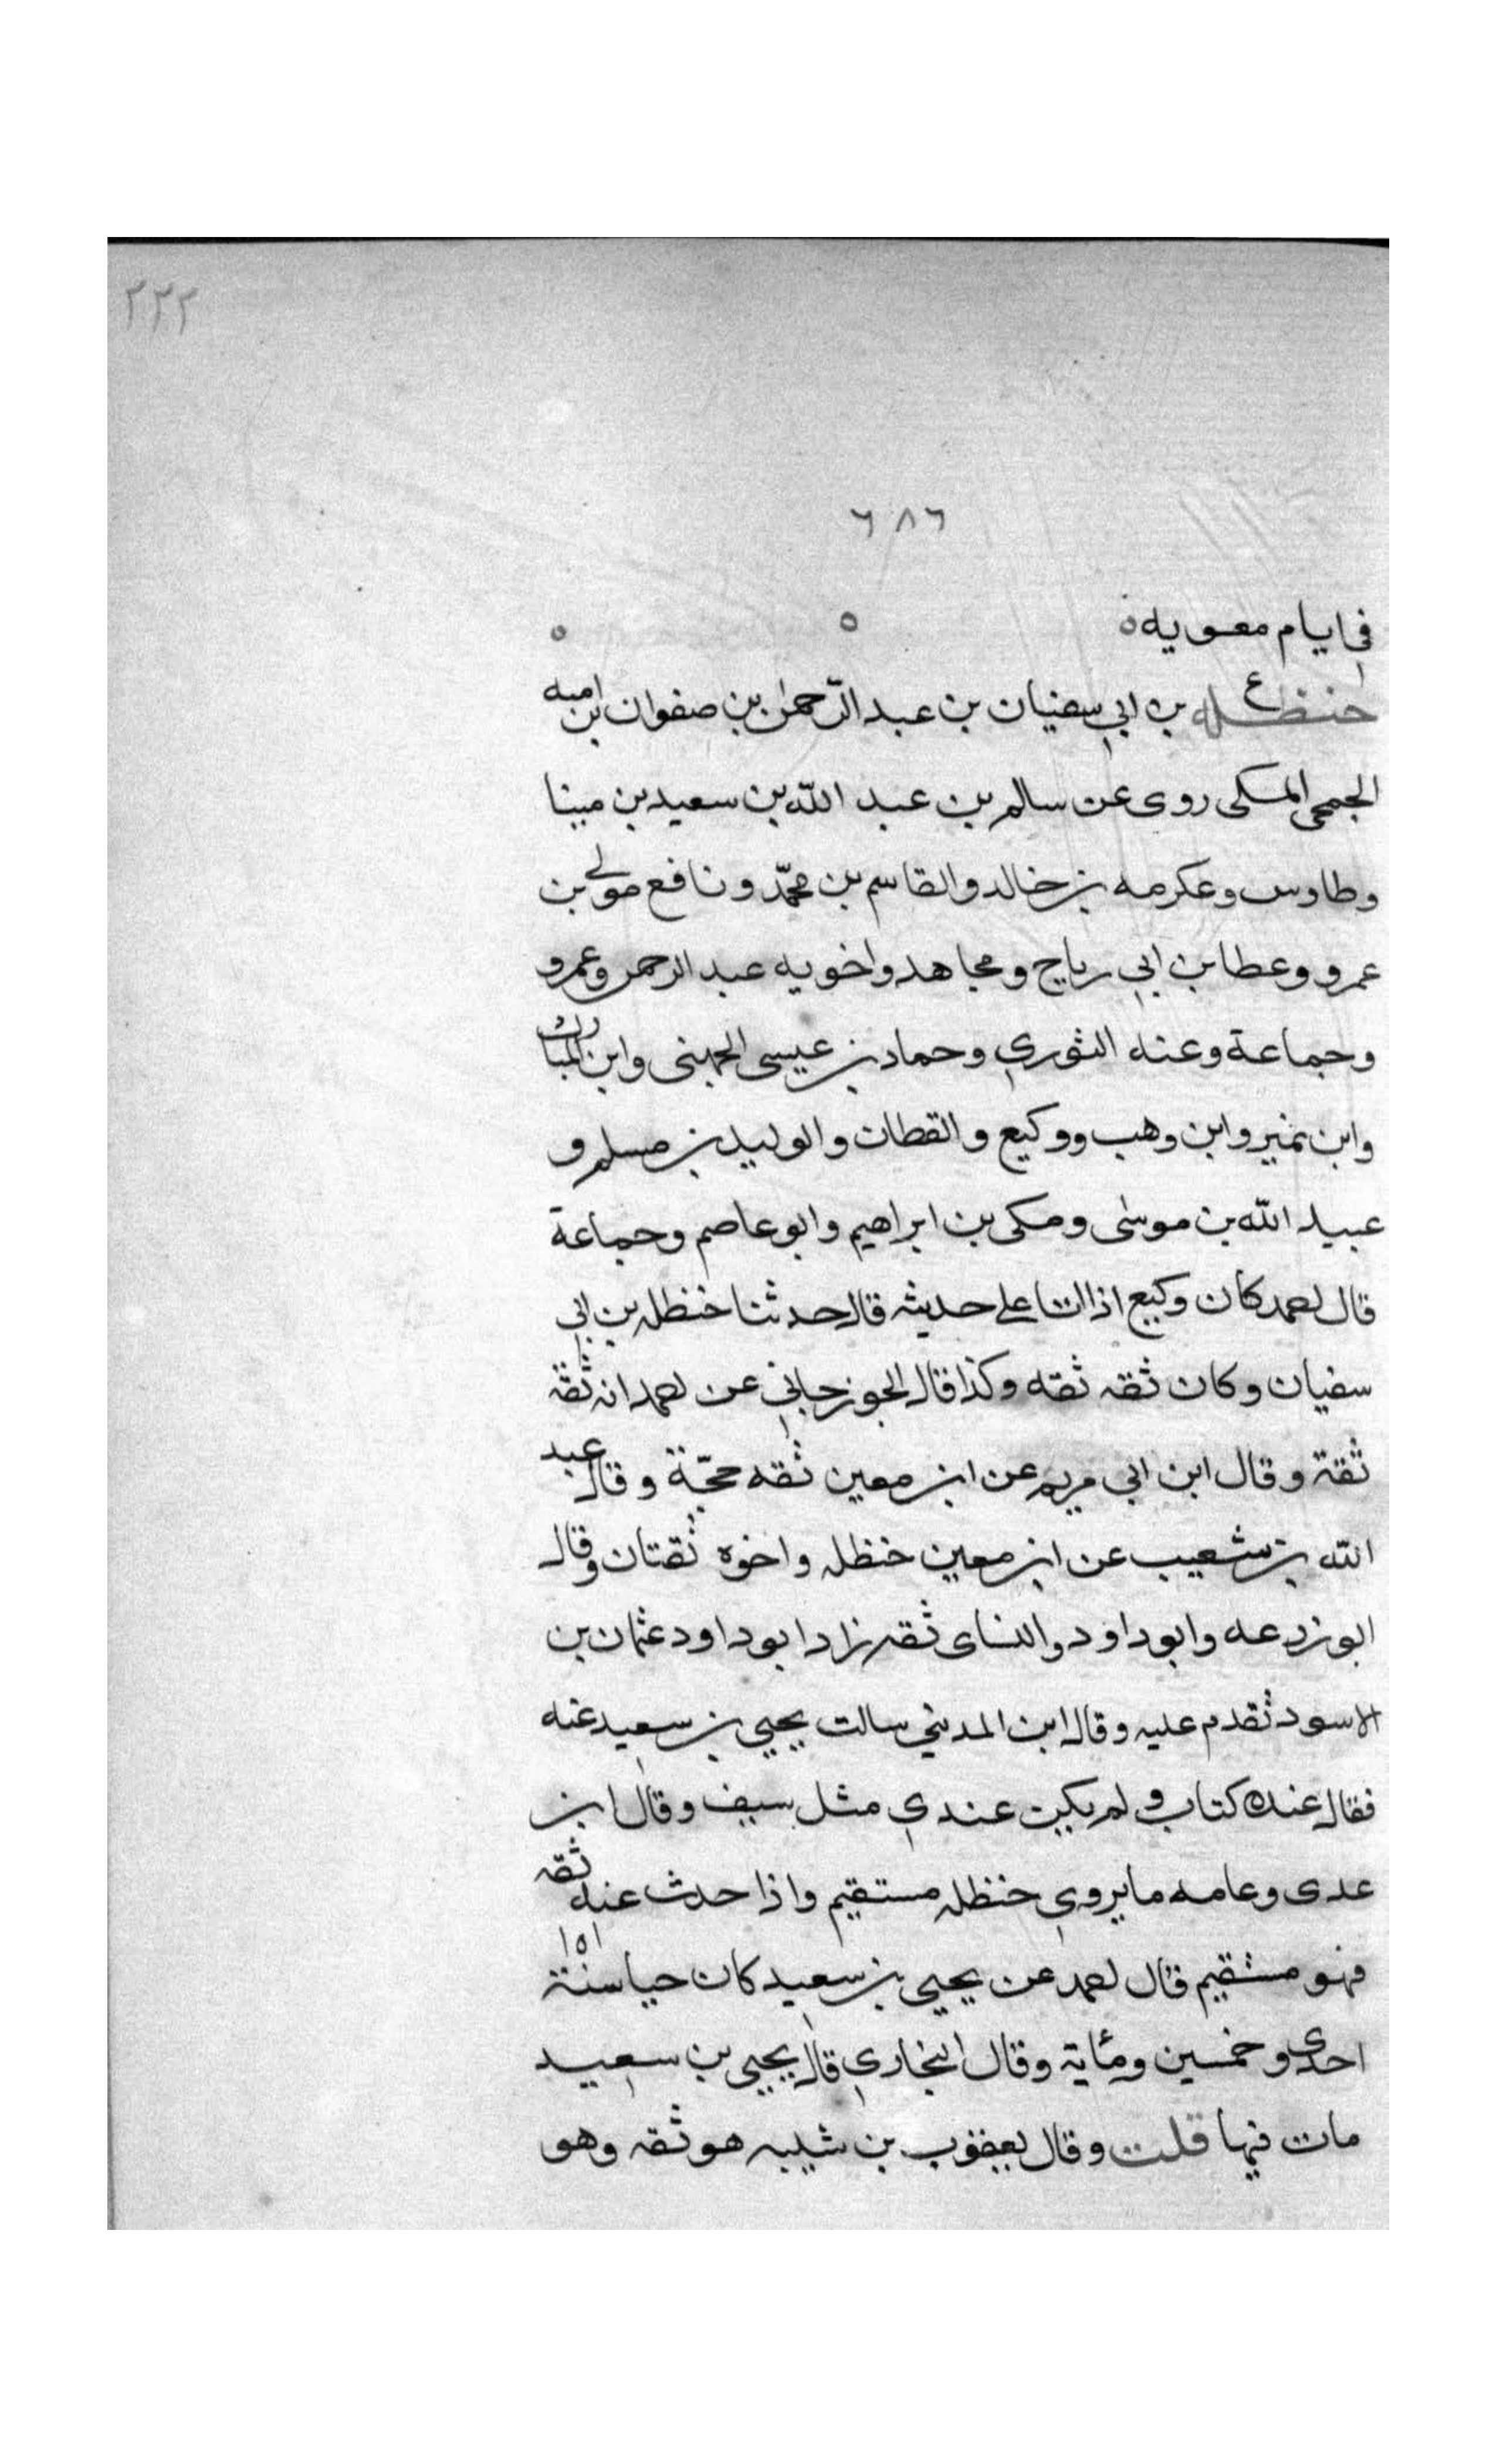 ٢٢٢
٦٨٦
في ايام معويه
ع
حنظله بن ابي سفيان بن عبد الرّحمن بن صفوان بن اميه
الجمحي المكي روى عن سالم بن عبد اللّه بن سعيد بن مينا
وطاوس وعكرمه بن خالد والقاسم بن محمّد ونافع مولى بن
عمرو وعطا بن ابي رباح ومجاهد واخويه عبد الرحمن وعمرو
وجماعة وعنه الثوري وحماد بن عيسى الجهني وابن المبارك
وابن نمير وابن وهب ووكيع والقطان والوليد بن مسلم و
عبيد اللّه بن موسى ومكى بن ابراهيم وابو عاصم وجماعة
قال احمد كان وكيع اذا اتا على حديثه قال حدثنا حنظله بن ابي
سفيان وكان ثقه ثقه وكذا قال الجوزجاني عن احمد انه ثقة
ثقة وقال ابن ابي مريم عن ابن معين ثقه حجّة وقال عبد
الله بن شعيب عن ابن معين حنظله واخوه ثقتان وقال
ابو زرعه وابو داود والنساى ثقه زاد ابو داود عثمان بن
الاسود تقدم عليه وقال ابن المديني سالت يحيي بن سعيد عنه
فقال عنده كتاب ولم يكن عندي مثل سيف وقال ابن
عدى وعامه ما يروي حنظله مستقيم واذا حدث عنه ثقه
فهو مستقيم قال احمد عن يحيي بن سعيد كان حيا سنة ١٥١
احدى وخمسين ومئاية وقال البخاري قال يحيي بن سعيد
مات فيها قلت وقال يعقوب بن شيبه هو ثقه وهو